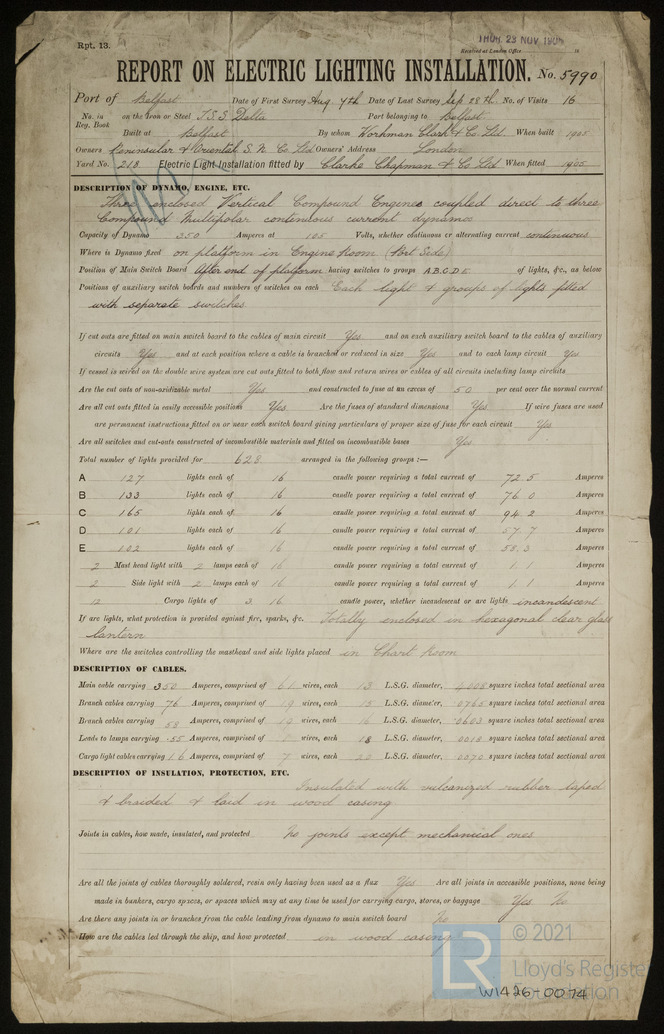 Rpt. 13.
THUR. 23 NOV 1905
Received at London Office 19
REPORT ON ELECTRIC LIGHTING INSTALLATION. No. 5990
Port of Belfast Date of First Survey Aug 7th Date of Last Survey Sep 28th No. of Visits 16
No. in Reg. Book on the Iron or Steel T.S.S. Delta Port belonging to Belfast
Built at Belfast By whom Workman Clark & Co Ltd When built 1905
Owners Peninsular & Oriental S. N. Co Ltd Owners' Address London
Yard No. 218 Electric Light Installation fitted by Clarke Chapman & Co Ltd When fitted 1905
DESCRIPTION OF DYNAMO, ENGINE, ETC.
Three enclosed Vertical Compound Engines coupled direct to three
Compound Multipolar continuous current dynamos
Capacity of Dynamo 350 Amperes at 105 Volts, whether continuous or alternating current continuous
Where is Dynamo fixed on platform in Engine Room (Port Side)
Position of Main Switch Board After end of platform having switches to groups A B C D E of lights, &c., as below
Positions of auxiliary switch boards and numbers of switches on each Each light & groups of lights fitted
with separate switches
If cut outs are fitted on main switch board to the cables of main circuit Yes and on each auxiliary switch board to the cables of auxiliary
circuits Yes and at each position where a cable is branched or reduced in size Yes and to each lamp circuit Yes
If vessel is wired on the double wire system are cut outs fitted to both flow and return wires or cables of all circuits including lamp circuits
Are the cut outs of non-oxidizable metal Yes and constructed to fuse at an excess of 50 per cent over the normal current
Are all cut outs fitted in easily accessible positions Yes Are the fuses of standard dimensions Yes If wire fuses are used
are permanent instructions fitted on or near each switch board giving particulars of proper size of fuse for each circuit Yes
Are all switches and cut-outs constructed of incombustible materials and fitted on incombustible bases Yes
Total number of lights provided for 628 arranged in the following groups :—
A 127 lights each of 16 candle power requiring a total current of 72.5 Amperes
B 133 lights each of 16 candle power requiring a total current of 76.0 Amperes
C 165 lights each of 16 candle power requiring a total current of 94.2 Amperes
D 101 lights each of 16 candle power requiring a total current of 57.7 Amperes
E 102 lights each of 16 candle power requiring a total current of 58.3 Amperes
2 Mast head light with 2 lamps each of 16 candle power requiring a total current of 1.1 Amperes
2 Side light with 2 lamps each of 16 candle power requiring a total current of 1.1 Amperes
12 Cargo lights of 3 16 candle power, whether incandescent or arc lights incandescent
If arc lights, what protection is provided against fire, sparks, &c. Totally enclosed in hexagonal clear glass
lantern
Where are the switches controlling the masthead and side lights placed in Chart Room
DESCRIPTION OF CABLES.
Main cable carrying 350 Amperes, comprised of 61 wires, each 13 L.S.G. diameter, .4008 square inches total sectional area
Branch cables carrying 76 Amperes, comprised of 19 wires, each 15 L.S.G. diameter, .0765 square inches total sectional area
Branch cables carrying 58 Amperes, comprised of 19 wires, each 16 L.S.G. diameter, .0603 square inches total sectional area
Leads to lamps carrying .55 Amperes, comprised of wires, each 18 L.S.G. diameter, .0018 square inches total sectional area
Cargo light cables carrying 1.6 Amperes, comprised of 7 wires, each L.S.G. diameter, .0070 square inches total sectional area
DESCRIPTION OF INSULATION, PROTECTION, ETC.
Insulated with vulcanized rubber taped
& braided & laid in wood casing
Joints in cables, how made, insulated, and protected No joints except mechanical ones
Are all the joints of cables thoroughly soldered, resin only having been used as a flux Yes Are all joints in accessible positions, none being
made in bunkers, cargo spaces, or spaces which may at any time be used for carrying cargo, stores, or baggage Yes No
Are there any joints in or branches from the cable leading from dynamo to main switch board No
How are the cables led through the ship, and how protected in wood casing
LR © 2021
Lloyd's Register
Foundation
W1426-0074